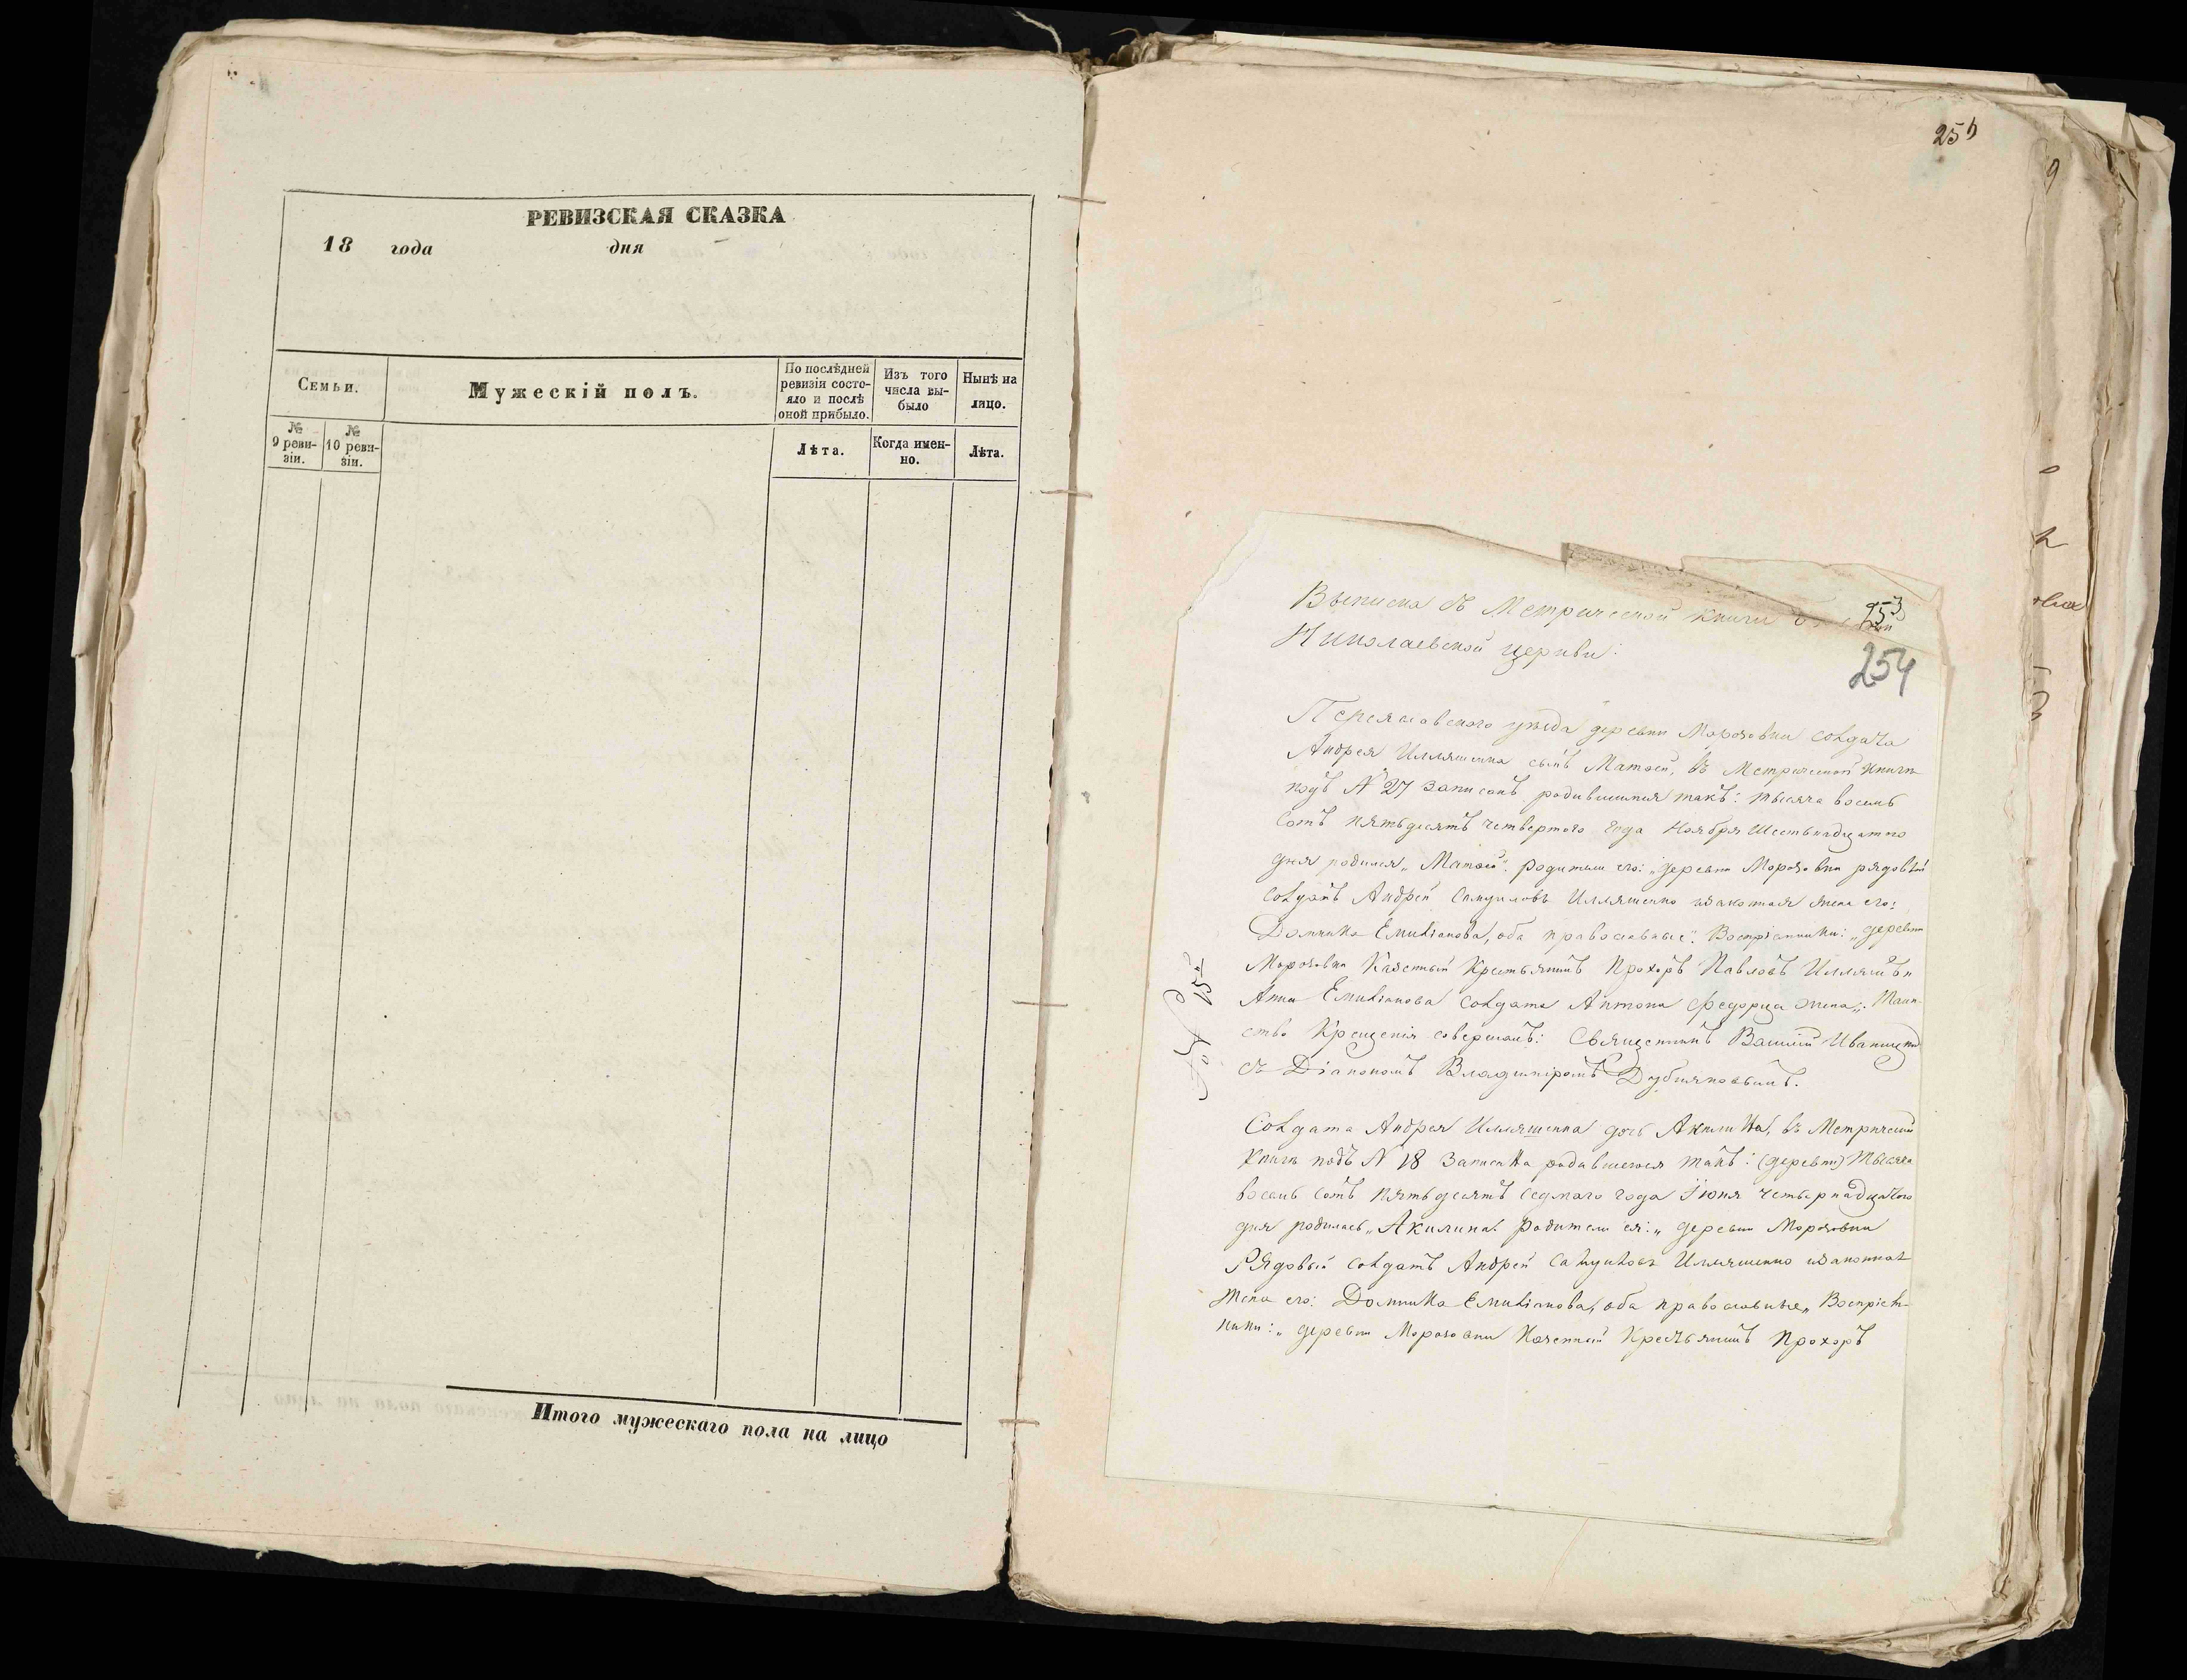 РЕВИЗСКАЯ СКАЗКА
18 года дня
Семьи.
Мужескій полъ.
По послѣдней ревизіи состо-
яло и послѣ
оной прибыло.
Изъ того
числа вы-
было
Нынѣ на
лицо.
№
9 реви-
зіи.
№
10 реви-
зіи.
Лѣта.
Когда имен-
но.
Лѣта.
Итого мужескаго пола на лицо
255
Выписка съ Метрической книги
253
Николаевской церкви:
254
Переяловского уѣзда деревни Морозовки солдата
Андрея Илляшенка сынъ Матѳей, въ Метрической книги
подъ № 27 записанъ родившимся такъ: тысяча восемь
сотъ пятьдесятъ четвертого года Ноября Шестьнадцатого
дня родился „Матѳей". Родители его: „деревни Морозовки рядовый
солдатъ Андрей Самуиловъ Илляшенко изаконная жена его:
Домника Емиліанова, оба православные". Воспріемники: „деревни
Морозовки Казенный Крестьянинъ Прохоръ Павловъ Илляш и
Анна Емиліанова солдата Антона Федорца жена„. Таин-
ство Крещенія совершалъ: Священникъ Василій Иваницкій
съ Діакономъ Владиміромъ Дубняковымъ.
Солдата Андрея Илляшенка дочь Акилина, въ Метрической
Книги подъ № 18 Записана родившеюся такъ: (деревни) Тысяча
восемь сотъ пятьдесятъ седмаго года Іюня четырнадцатого
дня родилась „Акилина". Родители ея: „деревни Морозовки
Рядовый солдатъ Андрей Самуиловъ Илляшенко изаконная
жена его: Домника Емиліанова, оба православные„ Воспріем-
ники: „деревни Морозовки Казенный Крестьянинъ Прохоръ